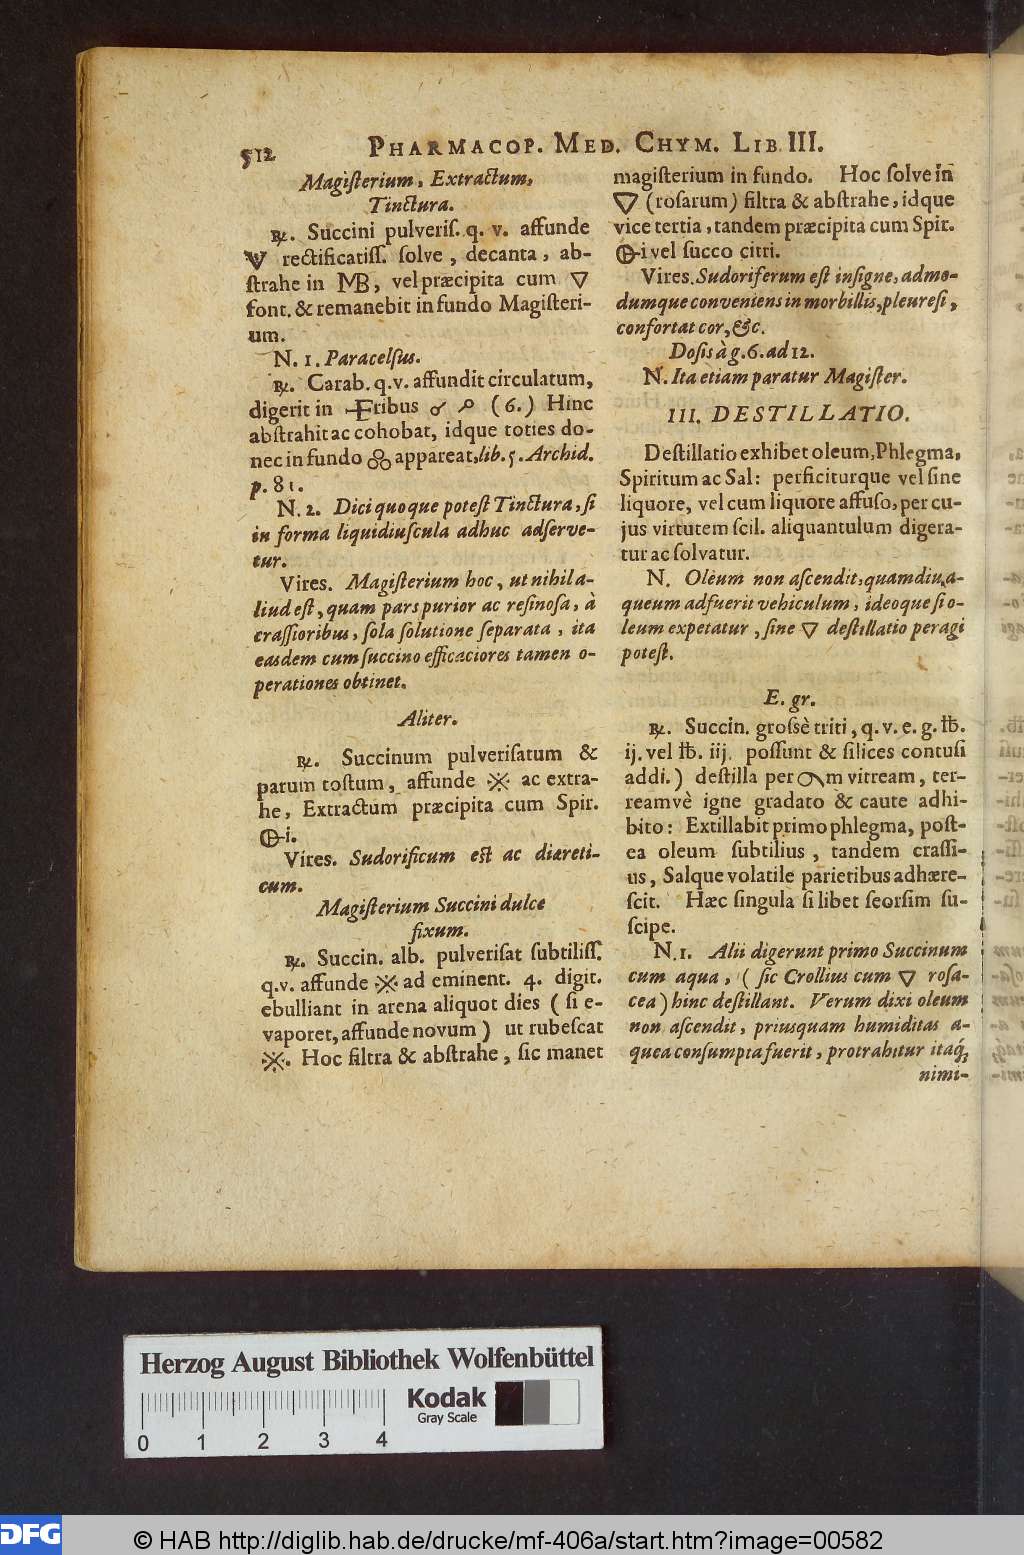 512 PHARMACOP. MED. CHYM. LIB III.
Magiſterium, Extractum,
Tinctura.
℞. Succini pulveriſ. q. v. affunde
rectificatiſſ. ſolve, decanta, ab-
ſtrahe in MB, vel præcipita cum 🜄
font. & remanebit in fundo Magiſteri-
um.
N. 1. Paracelſus.
℞. Carab. q.v. affundit circulatum,
digerit in ribus ♂ (6.) Hinc
abſtrahit ac cohobat, idque toties do-
nec in fundo appareat, lib. 5. Archid.
p. 81.
N. 2. Dici quoque poteſt Tinctura, ſi
in forma liquidiuſcula adhuc adſerve-
tur.
Vires. Magiſterium hoc, ut nihil a-
liud eſt, quam pars purior ac reſinoſa, à
craſſioribus, ſola ſolutione ſeparata, ita
easdem cum ſuccino efficaciores tamen o-
perationes obtinet.
Aliter.
℞. Succinum pulveriſatum &
parum toſtum, affunde ac extra-
he, Extractum præcipita cum Spir.
🜕i.
Vires. Sudorificum eſt ac diæreti-
cum.
Magiſterium Succini dulce
fixum.
℞. Succin. alb. pulveriſat ſubtiliſſ.
q.v. affunde ad eminent. 4. digit.
ebulliant in arena aliquot dies ( ſi e-
vaporet, affunde novum ) ut rubeſcat
. Hoc filtra & abſtrahe, ſic manet
magiſterium in fundo. Hoc ſolve in
🜄 (roſarum) filtra & abſtrahe, idque
vice tertia, tandem præcipita cum Spir.
🜕i vel ſucco citri.
Vires. Sudoriferum eſt inſigne, admo-
dumque conveniens in morbillis, pleureſi,
confortat cor, &c.
Doſis à g. 6. ad 12.
N. Ita etiam paratur Magiſter.
III. DESTILLATIO.
Deſtillatio exhibet oleum, Phlegma,
Spiritum ac Sal: perficiturque vel ſine
liquore, vel cum liquore affuſo, per cu-
jus virtutem ſcil. aliquantulum digera-
tur ac ſolvatur.
N. Oleum non aſcendit, quamdiu a-
queum adfuerit vehiculum, ideoque ſi o-
leum expetatur, ſine 🜄 deſtillatio peragi
poteſt.
E. gr.
℞. Succin. groſsè triti, q. v. e. g. ℔.
ij. vel ℔. iij. poſſunt & ſilices contuſi
addi.) deſtilla per m vitream, ter-
reamvè igne gradato & caute adhi-
bito: Extillabit primo phlegma, poſt-
ea oleum ſubtilius, tandem craſſi-
us, Salque volatile parietibus adhære-
ſcit. Hæc ſingula ſi libet ſeorſim ſu-
ſcipe.
N. 1. Alii digerunt primo Succinum
cum aqua, ( ſic Crollius cum 🜄 roſa-
cea ) hinc deſtillant. Verum dixi oleum
non aſcendit, priusquam humiditas a-
quea conſumpta fuerit, protrahitur itaq́;
nimi-
Herzog August Bibliothek Wolfenbüttel
Kodak
Gray Scale
0 1 2 3 4
DFG © HAB http://diglib.hab.de/drucke/mf-406a/start.htm?image=00582